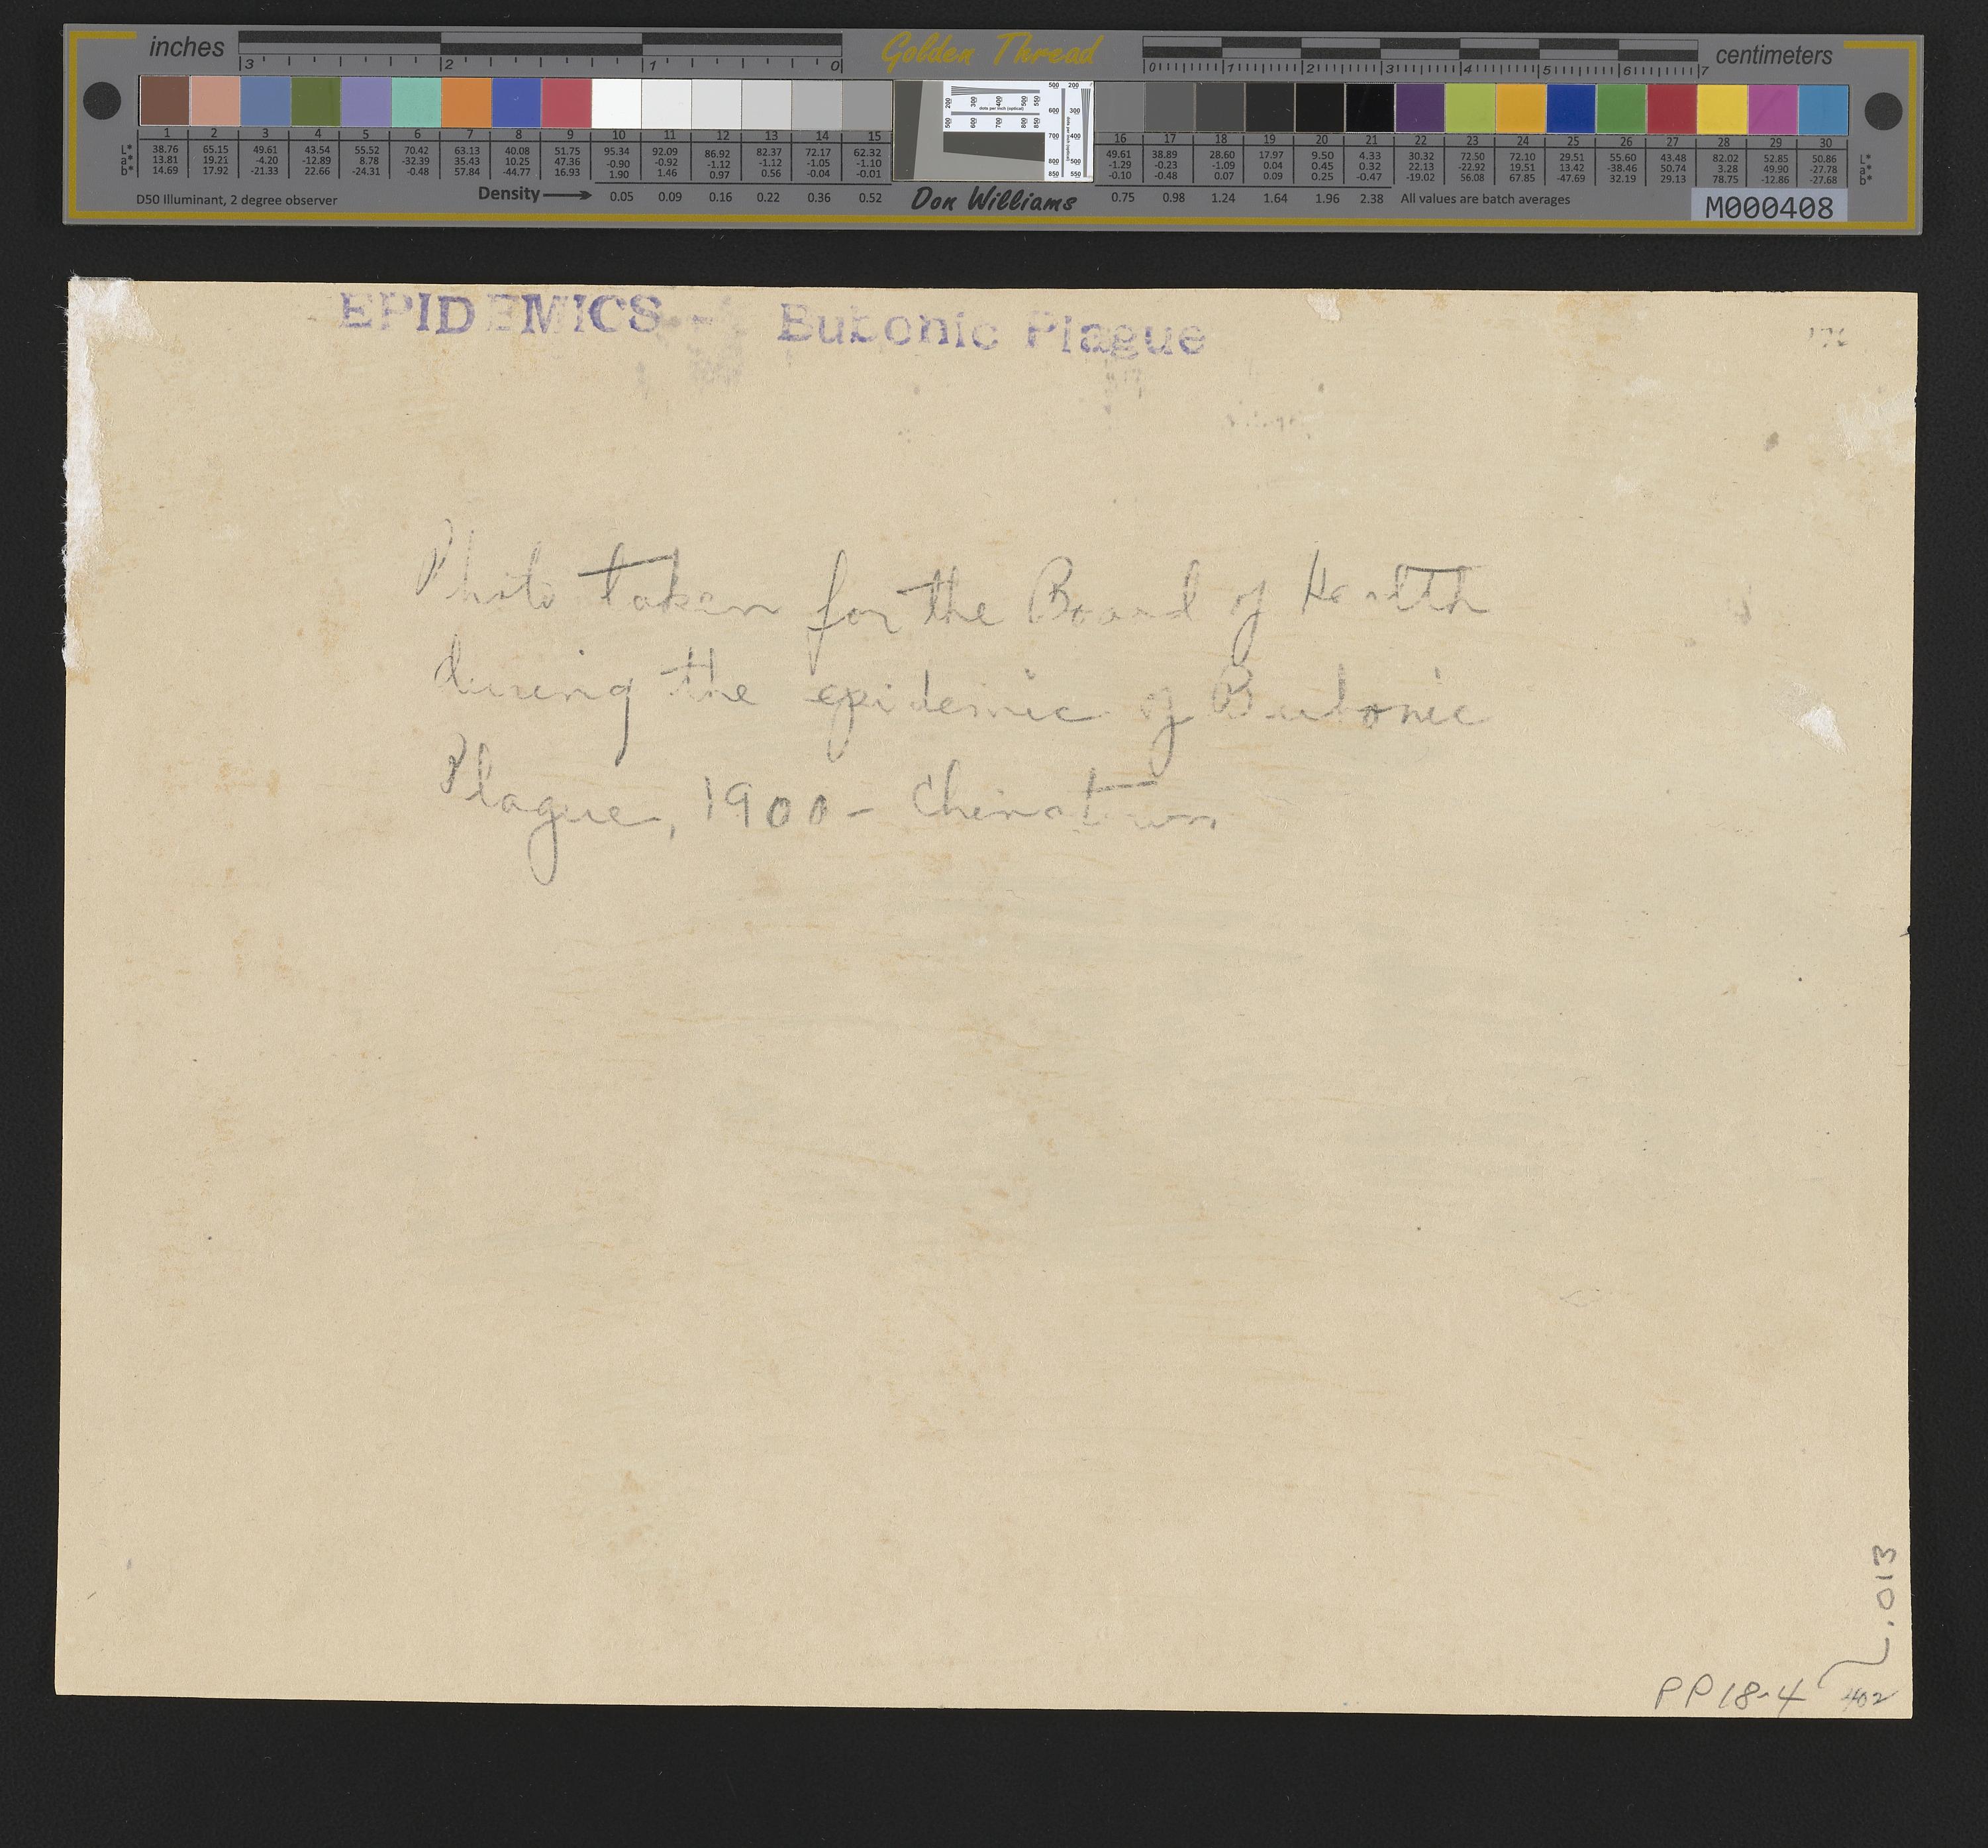 inches 3 2 1 0 Golden Thread 0 1 2 3 4 5 6 7 centimeters
1 2 3 4 5 6 7 8 9 10 11 12 13 14 15 16 17 18 19 20 21 22 23 24 25 26 27 28 29 30
L* 38.76 65.15 49.61 43.54 55.52 70.42 63.13 40.08 51.75 95.34 92.09 86.92 82.37 72.17 62.32 49.61 38.89 28.60 17.97 9.50 4.33 30.32 72.50 72.10 29.51 55.60 43.48 82.02 52.85 50.86 L*
a* 13.81 19.21 -4.20 -12.89 8.78 -32.39 35.43 10.25 47.36 -0.90 -0.92 -1.12 -1.12 -1.05 -1.10 -1.29 -0.23 -1.09 0.04 0.45 0.32 22.13 -22.92 19.51 13.42 -38.46 50.74 3.28 49.90 -27.78 a*
b* 14.69 17.92 -21.33 22.66 -24.31 -0.48 57.84 -44.77 16.93 1.90 1.46 0.97 0.56 -0.04 -0.01 -0.10 -0.48 0.07 0.09 0.25 -0.47 -19.02 56.08 67.85 -47.69 32.19 29.13 78.75 -12.86 -27.68 b*
D50 Illuminant, 2 degree observer Density 0.05 0.09 0.16 0.22 0.36 0.52 Don Williams 0.75 0.98 1.24 1.64 1.96 2.38 All values are batch averages M000408
EPIDEMICS -- Bubonic Plague
Photo taken for the Board of Health
during the epidemic of Bubonic
Plague, 1900 - Chinatown
.013
PP18-4 402